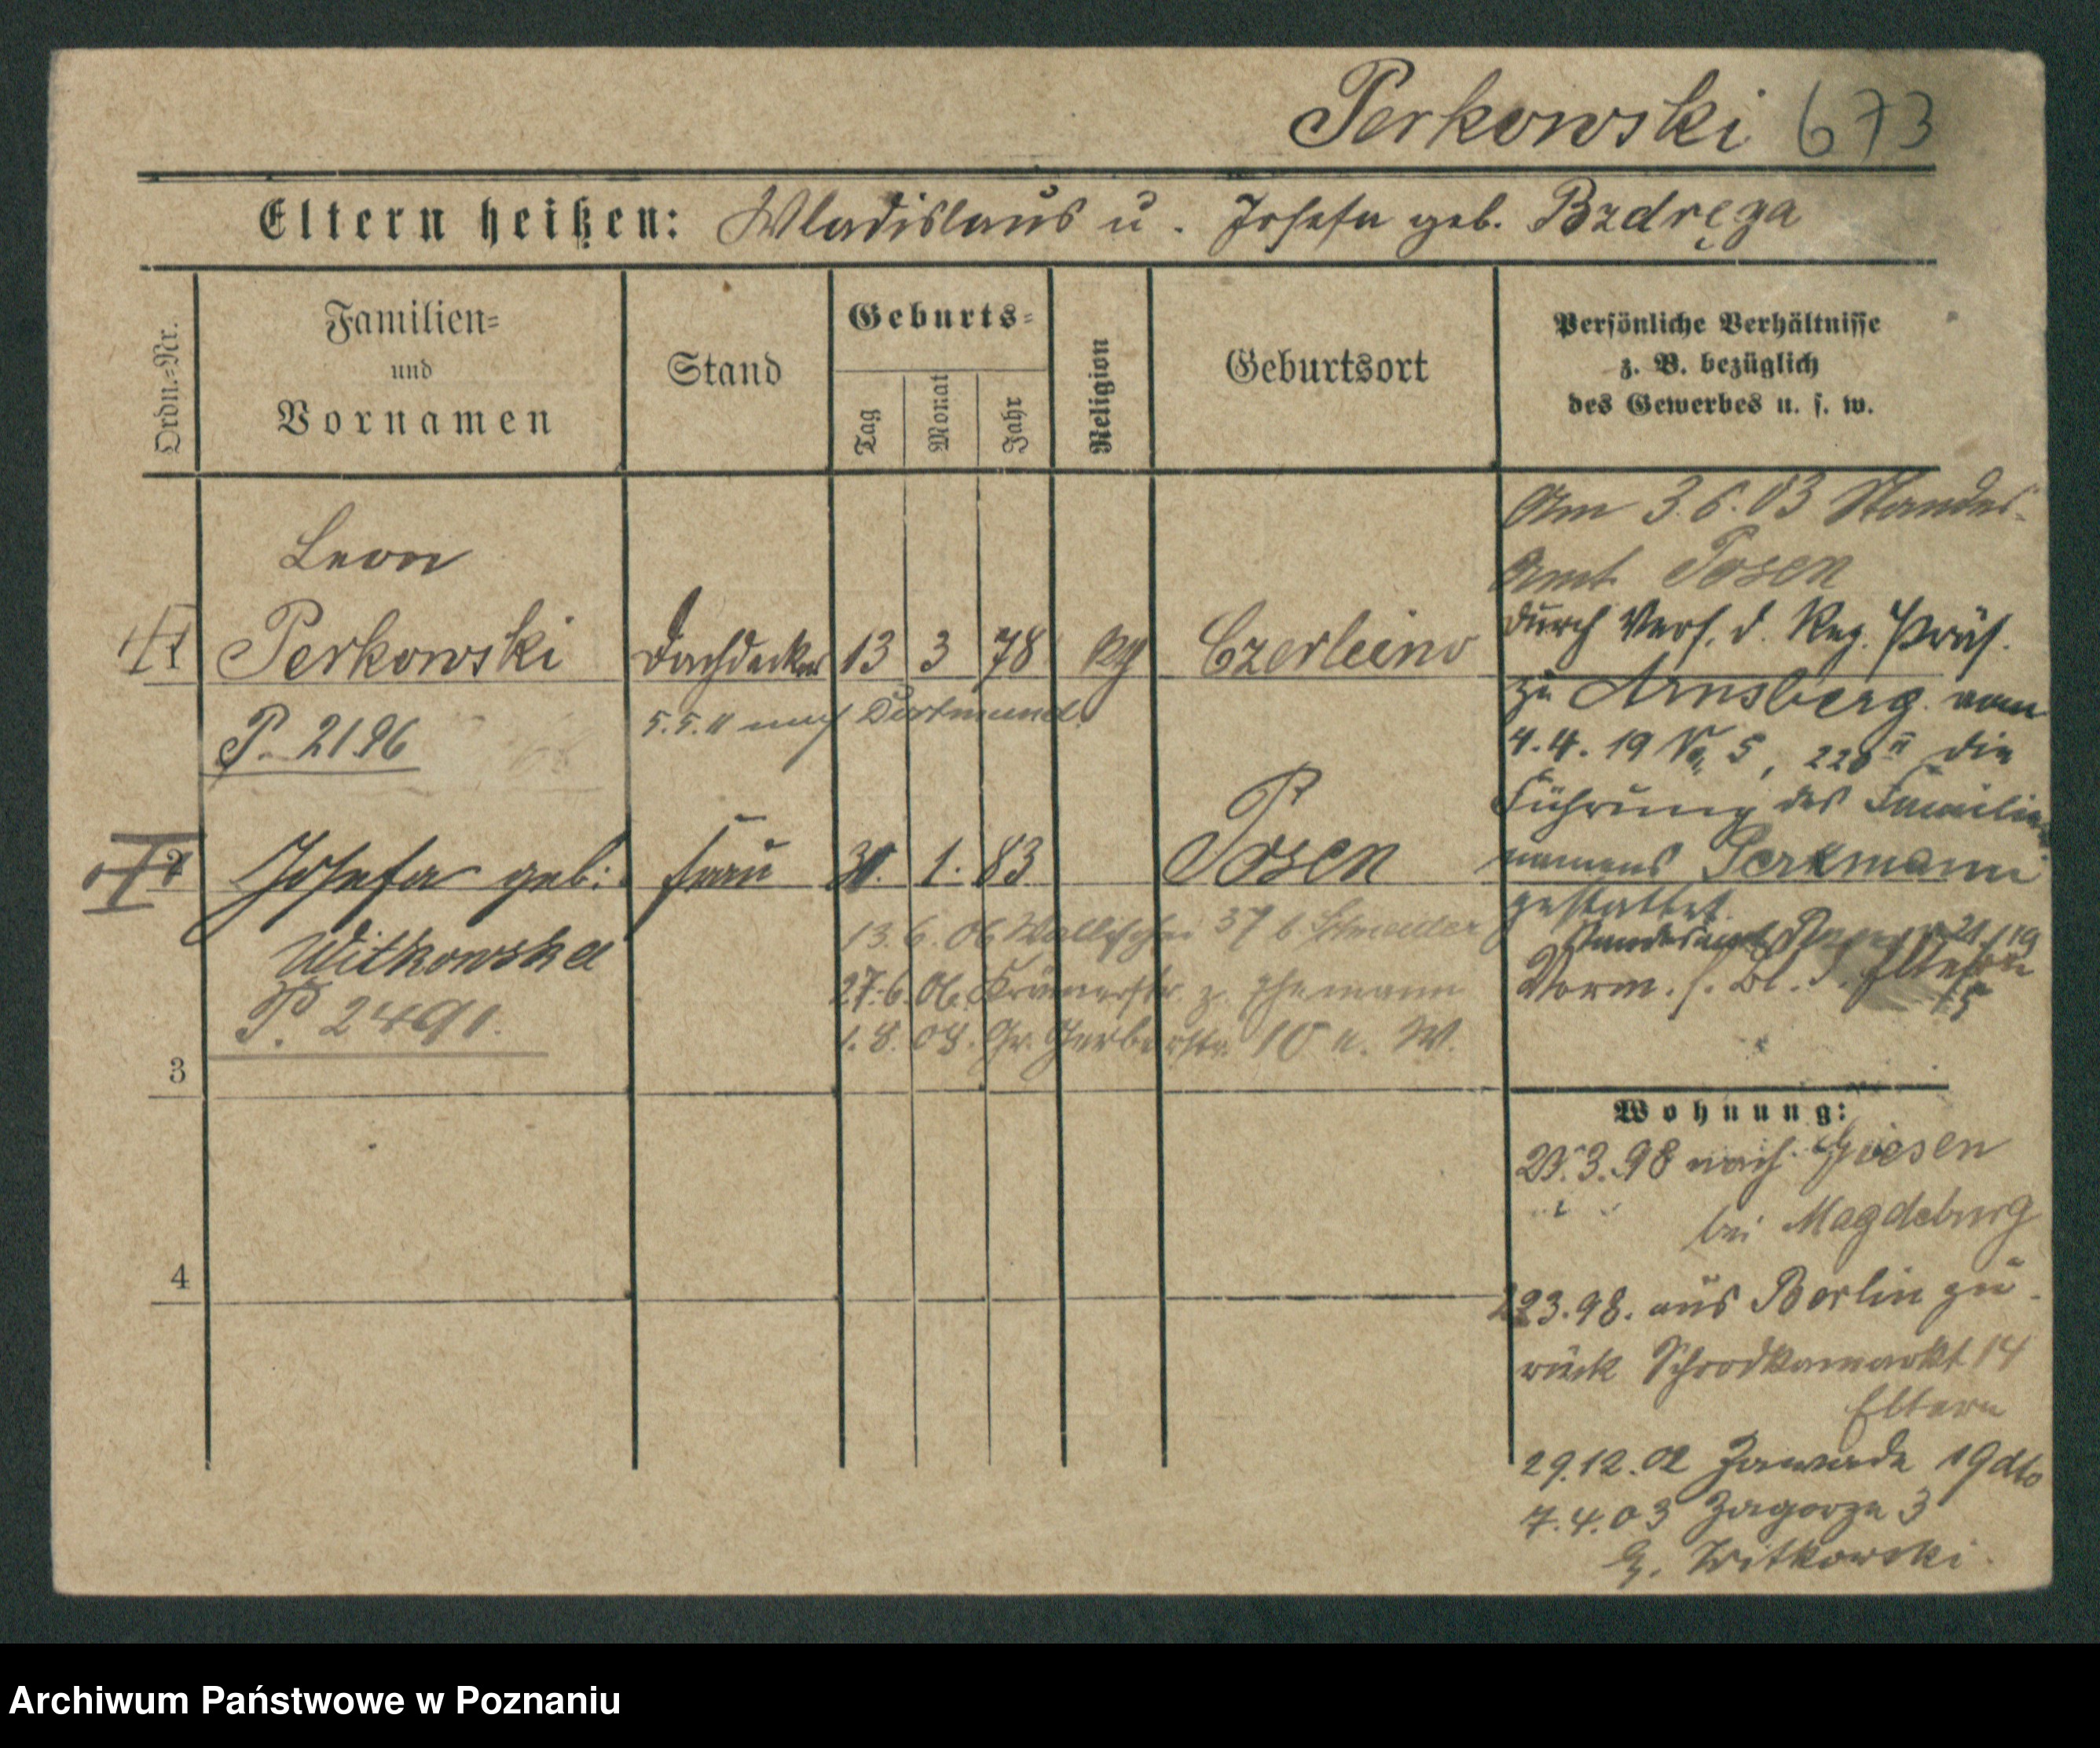 Perkowski 673
Eltern heißen: Wladislaus u. Josefa geb. Bzdręga
Ordn.-Nr.
Familien-
und
Vornamen
Stand
Geburts-
Tag
Monat
Jahr
Religion
Geburtsort
Persönliche Verhältnisse
z. B. bezüglich
des Gewerbes u. s. w.
Leon
1 Perkowski Dachdecker 13 3 78 kg Czerleino
P. 2196
5.5.11 nach Dortmund
2 Josefa geb. Frau 30. 1. 83 Posen
Witkowska
P. 2491.
13.6.06 Wallischei 37 b Schneider
27.6.06. Krämerstr. z. Ehemann
1.8.08. Gr. Gerberstr. 10 e. W.
3
4
Am 3.6.03 Standes-
Amt Posen
durch Verf. d. Reg. Präs.
zu Arnsberg vom
4.4.19 No 5, die
Führung des Familien
namens Perkmann
gestattet.
Standesamt
Vorm. s. Bl. d.
Wohnung:
3.98 nach
bei Magdeburg
3.98. aus Berlin zu-
rück Schrodkamarkt 14
Eltern
29.12.02 Zawade 19 dto
7.4.03 Zagorze 3
b. Witkowski
Archiwum Państwowe w Poznaniu